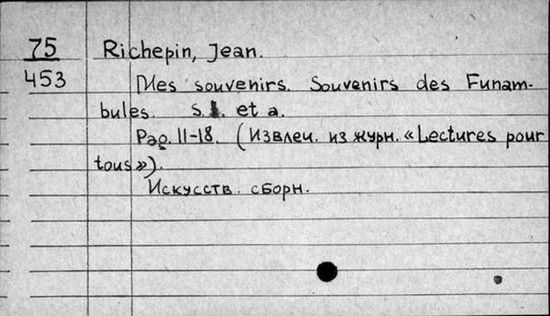 75 Richepin, Jean.
453 Mes souvenirs. Souvenirs des Funam-
bules. S.l. et a.
Pag. 11-18. (Извлеч. из журн. «Lectures pour
tous»).
Искусств. сборн.